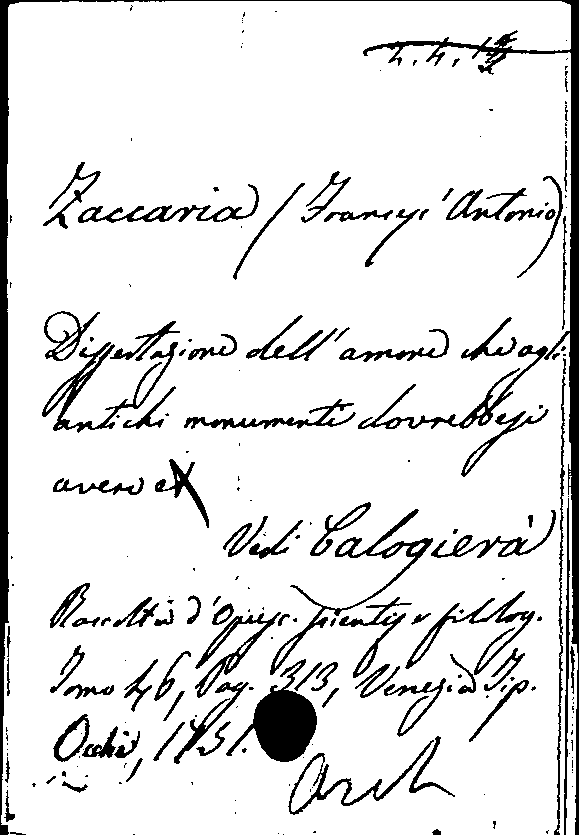 Zaccaria (Francesc' Antonio)
Dissertazione dell' amore che agli
antichi monumenti dovrebbesi
avere
Vedi Calogierà
Raccolta d'Opusc. scientif. e filolog.
Tomo 46, Pag. 313, Venezia Tip.
Occhi, 1751.
Arch